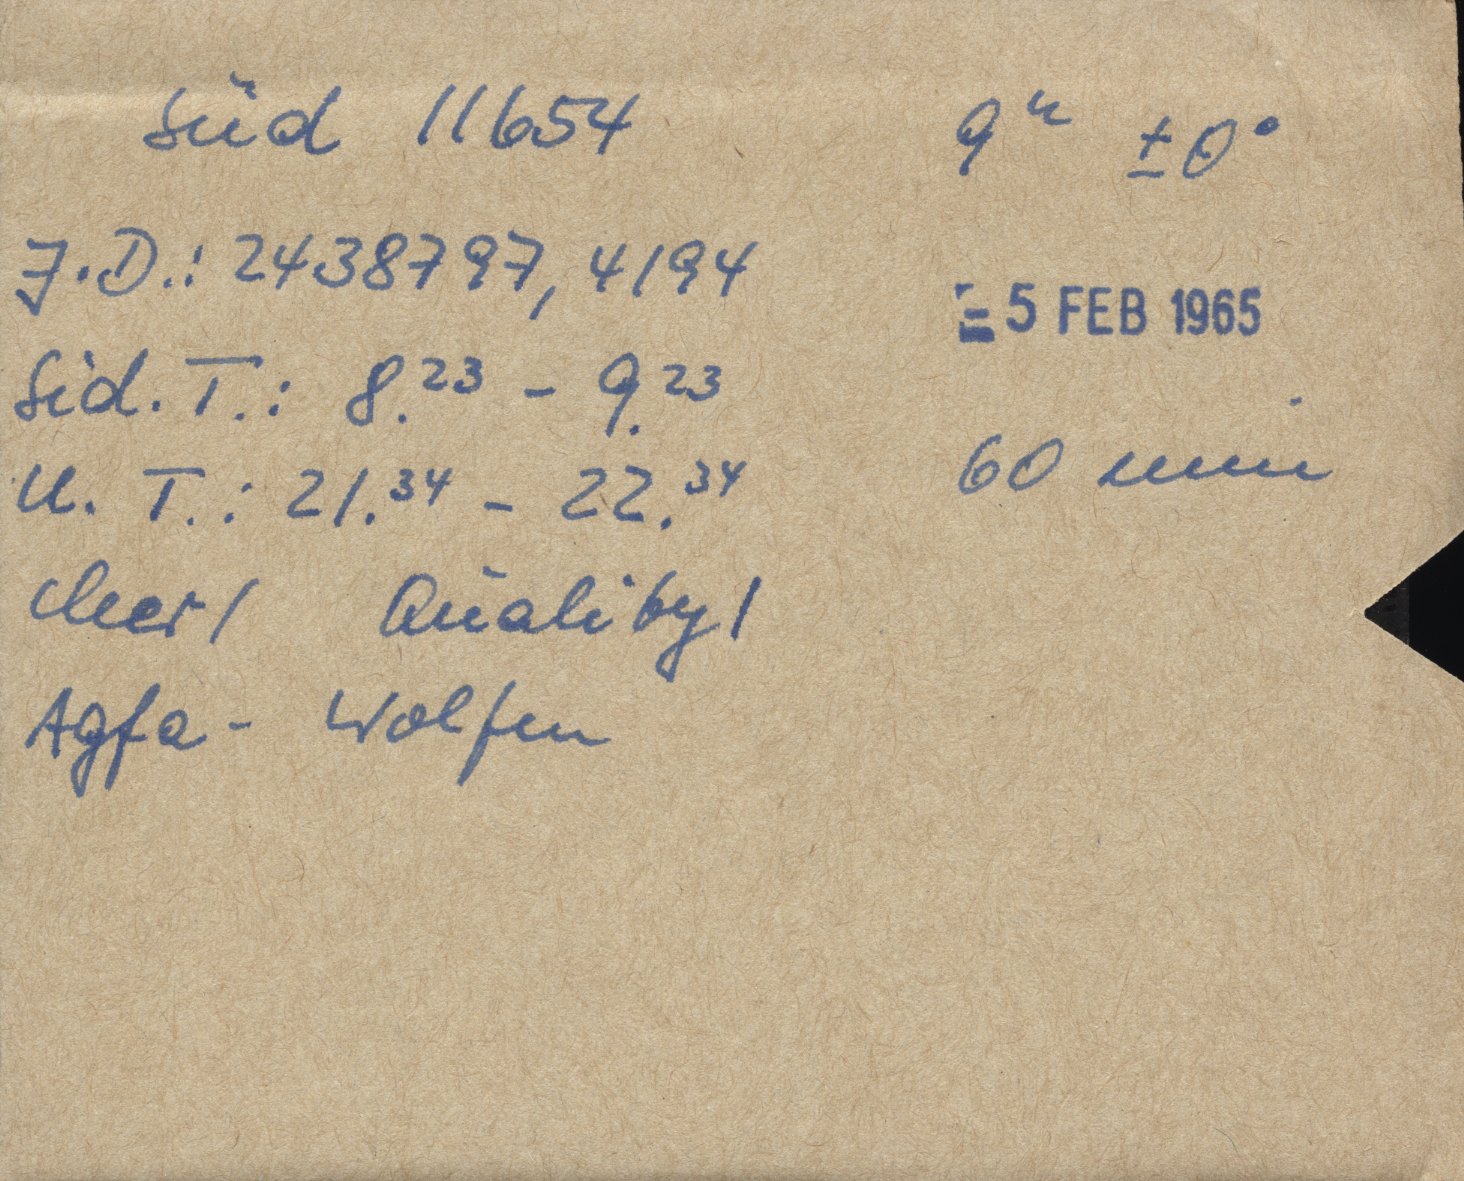 Süd 11654 9ʰ ±0°
J.D.: 2438797,4194
- 5 FEB 1965
Sid. T.: 8.²³ - 9.²³
60 min
U. T.: 21.³⁴ - 22.³⁴
Quality!
Agfa - Wolfen